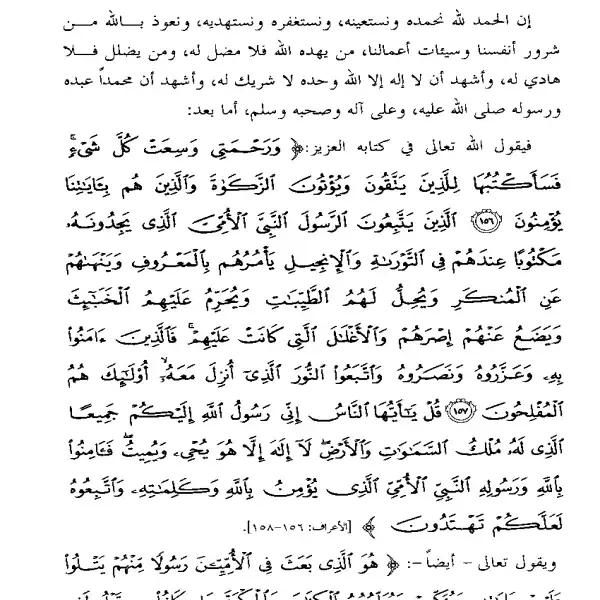 إن الحمد لله نحمده ونستعينه، ونستغفره ونستهديه، ونعوذ بـالله مـن
شرور أنفسنا وسيئات أعمالنا، من يهده الله فلا مضل له، ومن يضلل فـلا
هادي له، وأشهد أن لا إله إلا الله وحده لا شريك له، وأشهد أن محمداً عبده
ورسوله صلى الله عليه، وعلى آله وصحبه وسلم، أما بعد:
فيقول الله تعالى في كتابه العزيز: ﴿ وَرَحْمَتِى وَسِعَتْ كُلَّ شَىْءٍ ۚ
فَسَأَكْتُبُهَا لِلَّذِينَ يَتَّقُونَ وَيُؤْتُونَ ٱلزَّكَوٰةَ وَٱلَّذِينَ هُم بِـَٔايَـٰتِنَا
يُؤْمِنُونَ ﴿١٥٦﴾ ٱلَّذِينَ يَتَّبِعُونَ ٱلرَّسُولَ ٱلنَّبِىَّ ٱلْأُمِّىَّ ٱلَّذِى يَجِدُونَهُۥ
مَكْتُوبًا عِندَهُمْ فِى ٱلتَّوْرَىٰةِ وَٱلْإِنجِيلِ يَأْمُرُهُم بِٱلْمَعْرُوفِ وَيَنْهَىٰهُمْ
عَنِ ٱلْمُنكَرِ وَيُحِلُّ لَهُمُ ٱلطَّيِّبَـٰتِ وَيُحَرِّمُ عَلَيْهِمُ ٱلْخَبَـٰٓئِثَ
وَيَضَعُ عَنْهُمْ إِصْرَهُمْ وَٱلْأَغْلَـٰلَ ٱلَّتِى كَانَتْ عَلَيْهِمْ ۚ فَٱلَّذِينَ ءَامَنُوا۟
بِهِۦ وَعَزَّرُوهُ وَنَصَرُوهُ وَٱتَّبَعُوا۟ ٱلنُّورَ ٱلَّذِىٓ أُنزِلَ مَعَهُۥٓ ۙ أُو۟لَـٰٓئِكَ هُمُ
ٱلْمُفْلِحُونَ ﴿١٥٧﴾ قُلْ يَـٰٓأَيُّهَا ٱلنَّاسُ إِنِّى رَسُولُ ٱللَّهِ إِلَيْكُمْ جَمِيعًا
ٱلَّذِى لَهُۥ مُلْكُ ٱلسَّمَـٰوَٰتِ وَٱلْأَرْضِ ۖ لَآ إِلَـٰهَ إِلَّا هُوَ يُحْىِۦ وَيُمِيتُ ۖ فَـَٔامِنُوا۟
بِٱللَّهِ وَرَسُولِهِ ٱلنَّبِىِّ ٱلْأُمِّىِّ ٱلَّذِى يُؤْمِنُ بِٱللَّهِ وَكَلِمَـٰتِهِۦ وَٱتَّبِعُوهُ
لَعَلَّكُمْ تَهْتَدُونَ ﴾ [الأعراف: ١٥٦-١٥٨].
ويقول تعالى - أيضاً -: ﴿ هُوَ ٱلَّذِى بَعَثَ فِى ٱلْأُمِّيِّـۧنَ رَسُولًا مِّنْهُمْ يَتْلُوا۟